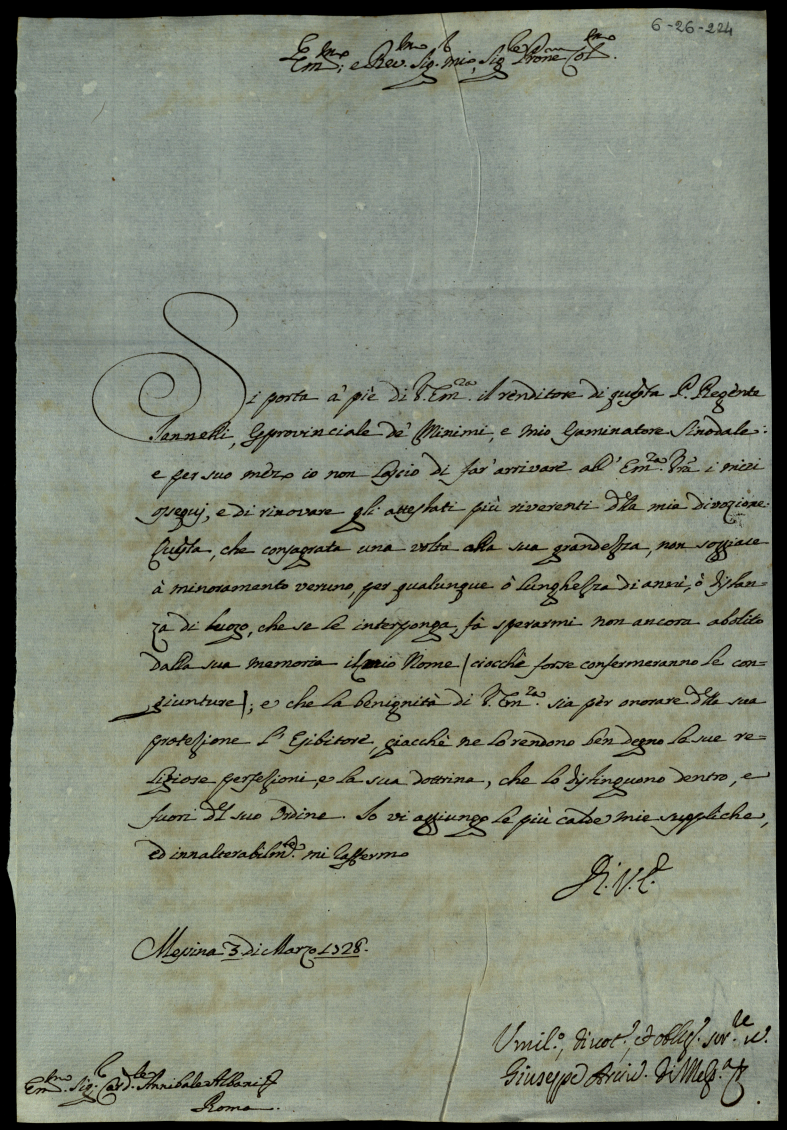 6-26-224
Em.mo e Rev.mo Sig.r mio, Sig.re Prone Col.mo
Si porta à piè di V. Em.za il renditore di questa P. Regente
Iannelli, Exprovinciale de' Minimi, e mio Esaminatore Sinodale:
e per suo mezo io non lascio di far' arrivare all' Em.za Vra i miei
ossequj, e di rinovare gli attestati più riverenti della mia divozione:
Questa, che consagrata una volta alla sua grandezza, non soggiace
à minoramento veruno, per qualunque ò lunghezza di anni, ò distan=
za di luogo, che se le interponga, fà sperarmi non ancora abolito
dalla sua memoria il mio Nome (ciocchè forse confermeranno le con=
giunture); e che la benignità di V. Em.za sia per onorare della sua
protezione l' Esibitore, giacchè ne lo rendono ben degno le sue re=
ligiose perfezioni, e la sua dottrina, che lo distinguono dentro, e
fuori del suo Ordine. Io vi aggiungo le più calde mie suppliche,
ed innalterabilm.te mi raffermo
Di V. E.
Messina 3 di Marzo 1728.
Umil.o, divot.o, ed oblig.o ser.re v.
Giuseppe Arciv. di Mess.a
Em.mo Sig.r Card.le Annibale Albani
Roma